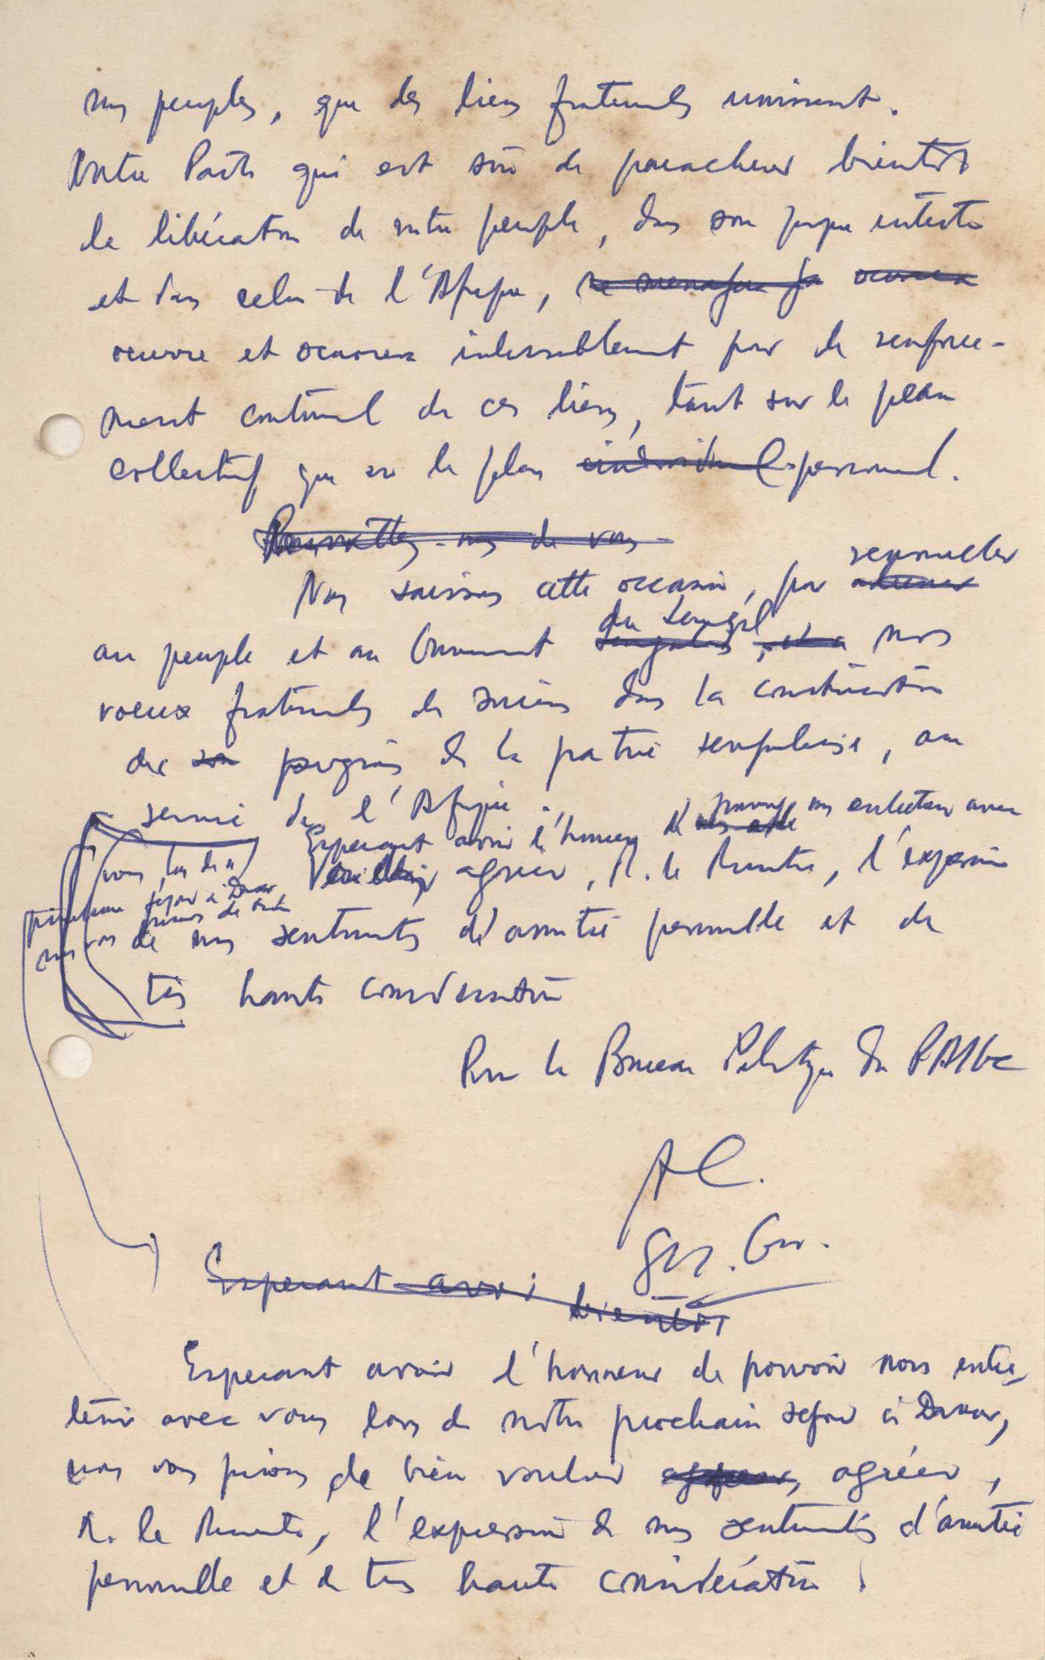 nos peuples, que des liens fraternels unissent.
Notre Parti qui est sûr de parachever bientôt
la libération de notre peuple, dans son propre intérêt
et dans celui de l'Afrique, ne menagera pas
oeuvre et oeuvrera inlassablement pour le renforce-
ment continuel de ces liens, tant sur le plan
collectif que sur le plan individuel personnel.
Permettez-nous de vous
Nous saisissons cette occasion, pour renouveler
au peuple et au Gouvernement du Senegal nos
voeux fraternels de succès dans la construction
du son progrès de la patrie sénégalaise, au
service de l'Afrique.
Esperant avoir l'honneur de pouvoir nous entretenir avec
vous lors de n/
prochain sejour à Dakar,
nous vous prions de
Veuillez agréer, M. le Ministre, l'expression
de nos sentiments d'amitié personnelle et de
très haute considération
Pour le Bureau Politique du PAIGC
A C.
Sec. Gen.
Esperant avoir bientôt
Esperant avoir l'honneur de pouvoir nous entre-
tenir avec vous lors de notre prochain sejour à Dakar,
nous vous prions de bien vouloir agréer,
M. le Ministre, l'expression de nos sentiments d'amitié
personnelle et de très haute considération.